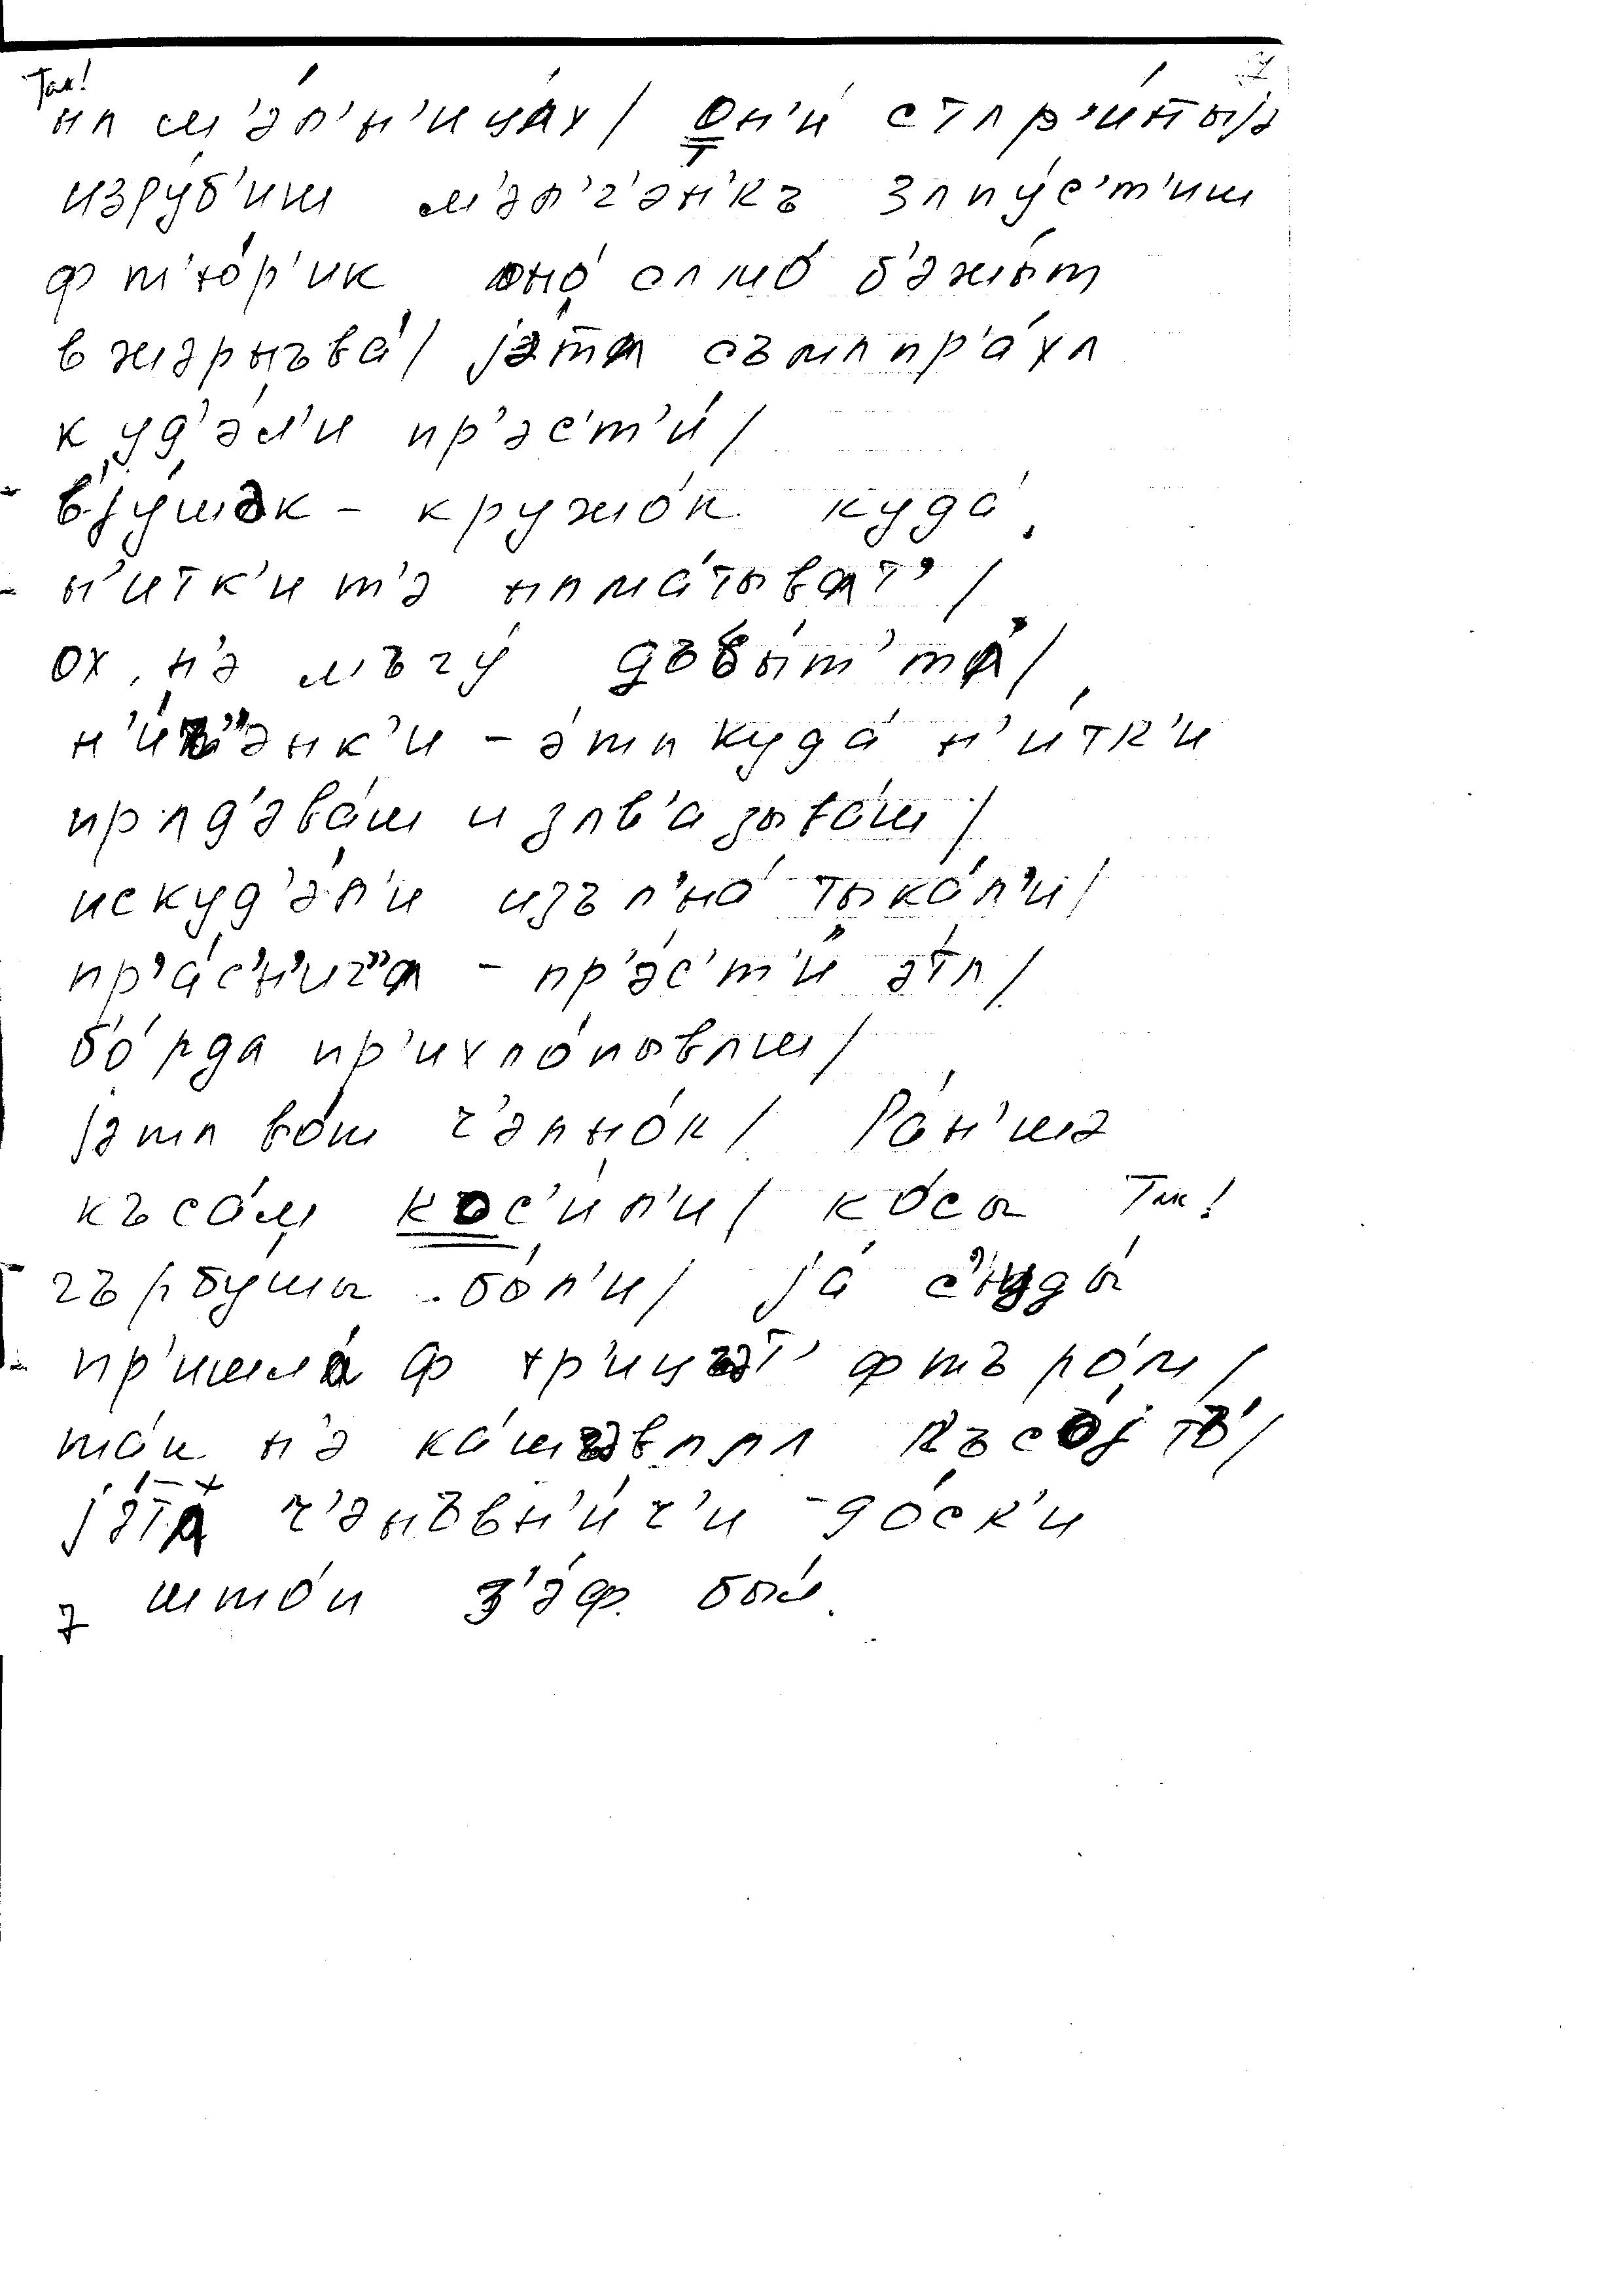 Так!
нʌ м'э́л'н'ицʌх/ Он'и́ стʌр'и́нныjэ
изру́б'иш м'эл'г'э́н'къ зʌпу́с'т'иш
ф т'ю́р'ик ʌно́ сʌмо́ б'эжы́т
в жэрнъва́/ jэ́тʌ съмʌпр'а́хʌ
куд'э́л'и пр'эс'т'и́/
в'jу́шэк - кружо́к куда́
н'и́тк'и т'э нʌма́тывʌт'/
ох, н'э мъгу́ дъбы́т'тʌ́/
н'и́ч"энк'и - э́тʌ куда́ н'и́тк'и
прʌд'эва́ш и зʌв'а́зыва́ш/
искуд'э́л'и изъл'на́ тыка́л'и/
пр'а́с'н'ич"ʌ - пр'э́с'т'и́ э́тʌ/
бо́рда пр'ихло́пывʌш/
jэ́тʌ во́т ч'элно́к/ Ра́н'шэ
къса́м кос'и́л'и/ ко́сы Так!
гърбу́шы бо́л'и/ ja с'уды́
пр'ишла́ ф тр'и́цэт' фтъро́м/
та́к н'э ка́шывʌлʌ късо́j тъ́/
jэ́тʌ ч'энъвн'и́ч'и - до́ск'и
штоп з'э́ф. бы́л.
7